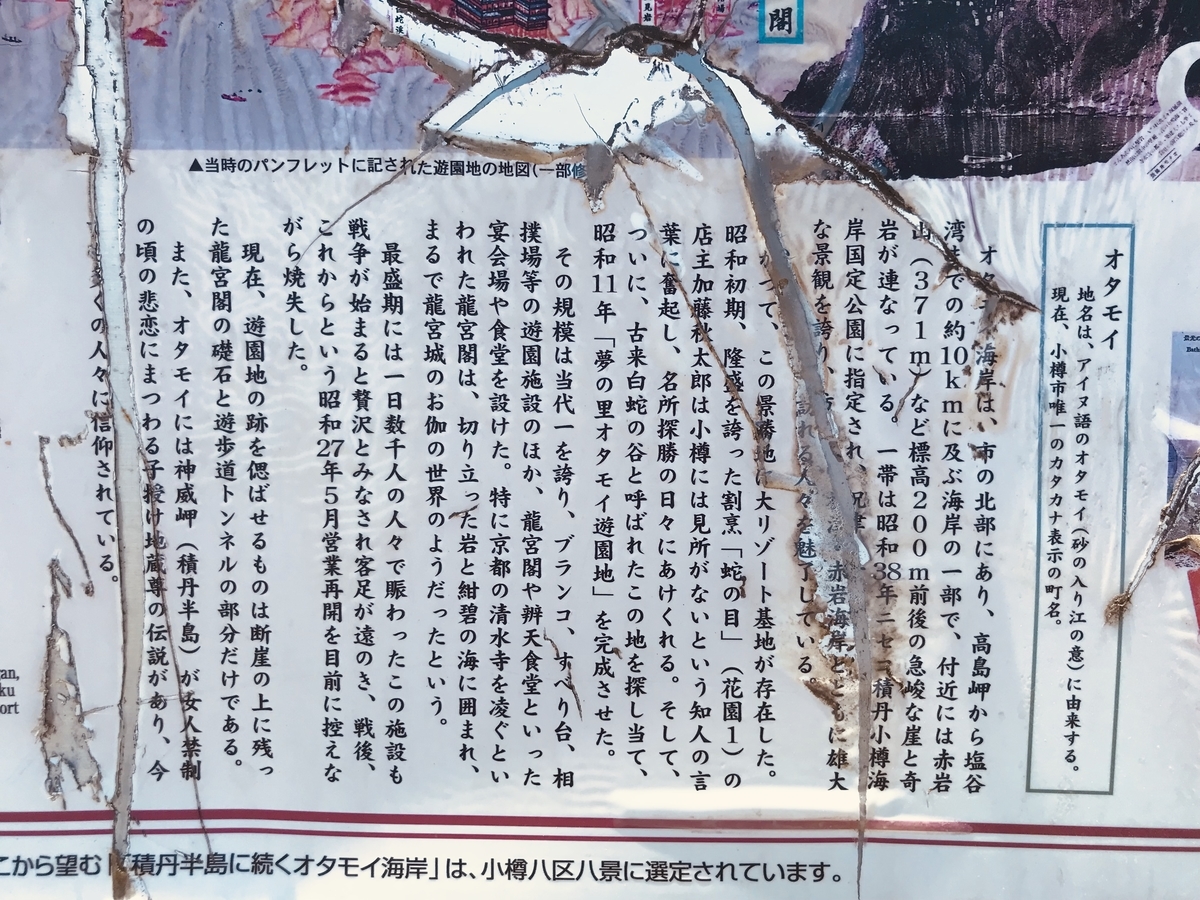 閣
見岩
蛇渓
▲当時のパンフレットに記された遊園地の地図(一部修
オタモイ
地名は、アイヌ語のオタモイ(砂の入り江の意)に由来する。
現在、小樽市唯一のカタカナ表示の町名。
オタ 海岸は、市の北部にあり、高島岬から塩谷
湾までの約10kmに及ぶ海岸の一部で、付近には赤岩
山(371m)など標高200m前後の急峻な崖と奇
岩が連なっている。一帯は昭和38年ニセコ積丹小樽海
岸国定公園に指定され、 赤岩海岸とともに雄大
な景観を誇り、 訪れる人々を魅了している。
かつて、この景勝地に大リゾート基地が存在した。
昭和初期、隆盛を誇った割烹「蛇の目」(花園1)の
店主加藤秋太郎は小樽には見所がないという知人の言
葉に奮起し、名所探勝の日々にあけくれる。そして、
ついに、古来白蛇の谷と呼ばれたこの地を探し当て、
昭和11年「夢の里オタモイ遊園地」を完成させた。
その規模は当代一を誇り、ブランコ、すべり台、相
撲場等の遊園施設のほか、龍宮閣や辨天食堂といった
宴会場や食堂を設けた。特に京都の清水寺を凌ぐとい
われた龍宮閣は、切り立った岩と紺碧の海に囲まれ、
まるで龍宮城のお伽の世界のようだったという。
最盛期には一日数千人の人々で賑わったこの施設も
戦争が始まると贅沢とみなされ客足が遠のき、戦後、
これからという昭和27年5月営業再開を目前に控えな
がら焼失した。
現在、遊園地の跡を偲ばせるものは断崖の上に残っ
た龍宮閣の礎石と遊歩道トンネルの部分だけである。
また、オタモイには神威岬(積丹半島)が女人禁制
の頃の悲恋にまつわる子授け地蔵尊の伝説があり、今
多くの人々に信仰されている。
こから望む「積丹半島に続くオタモイ海岸」は、小樽八区八景に選定されています。
gan,
ku
ort